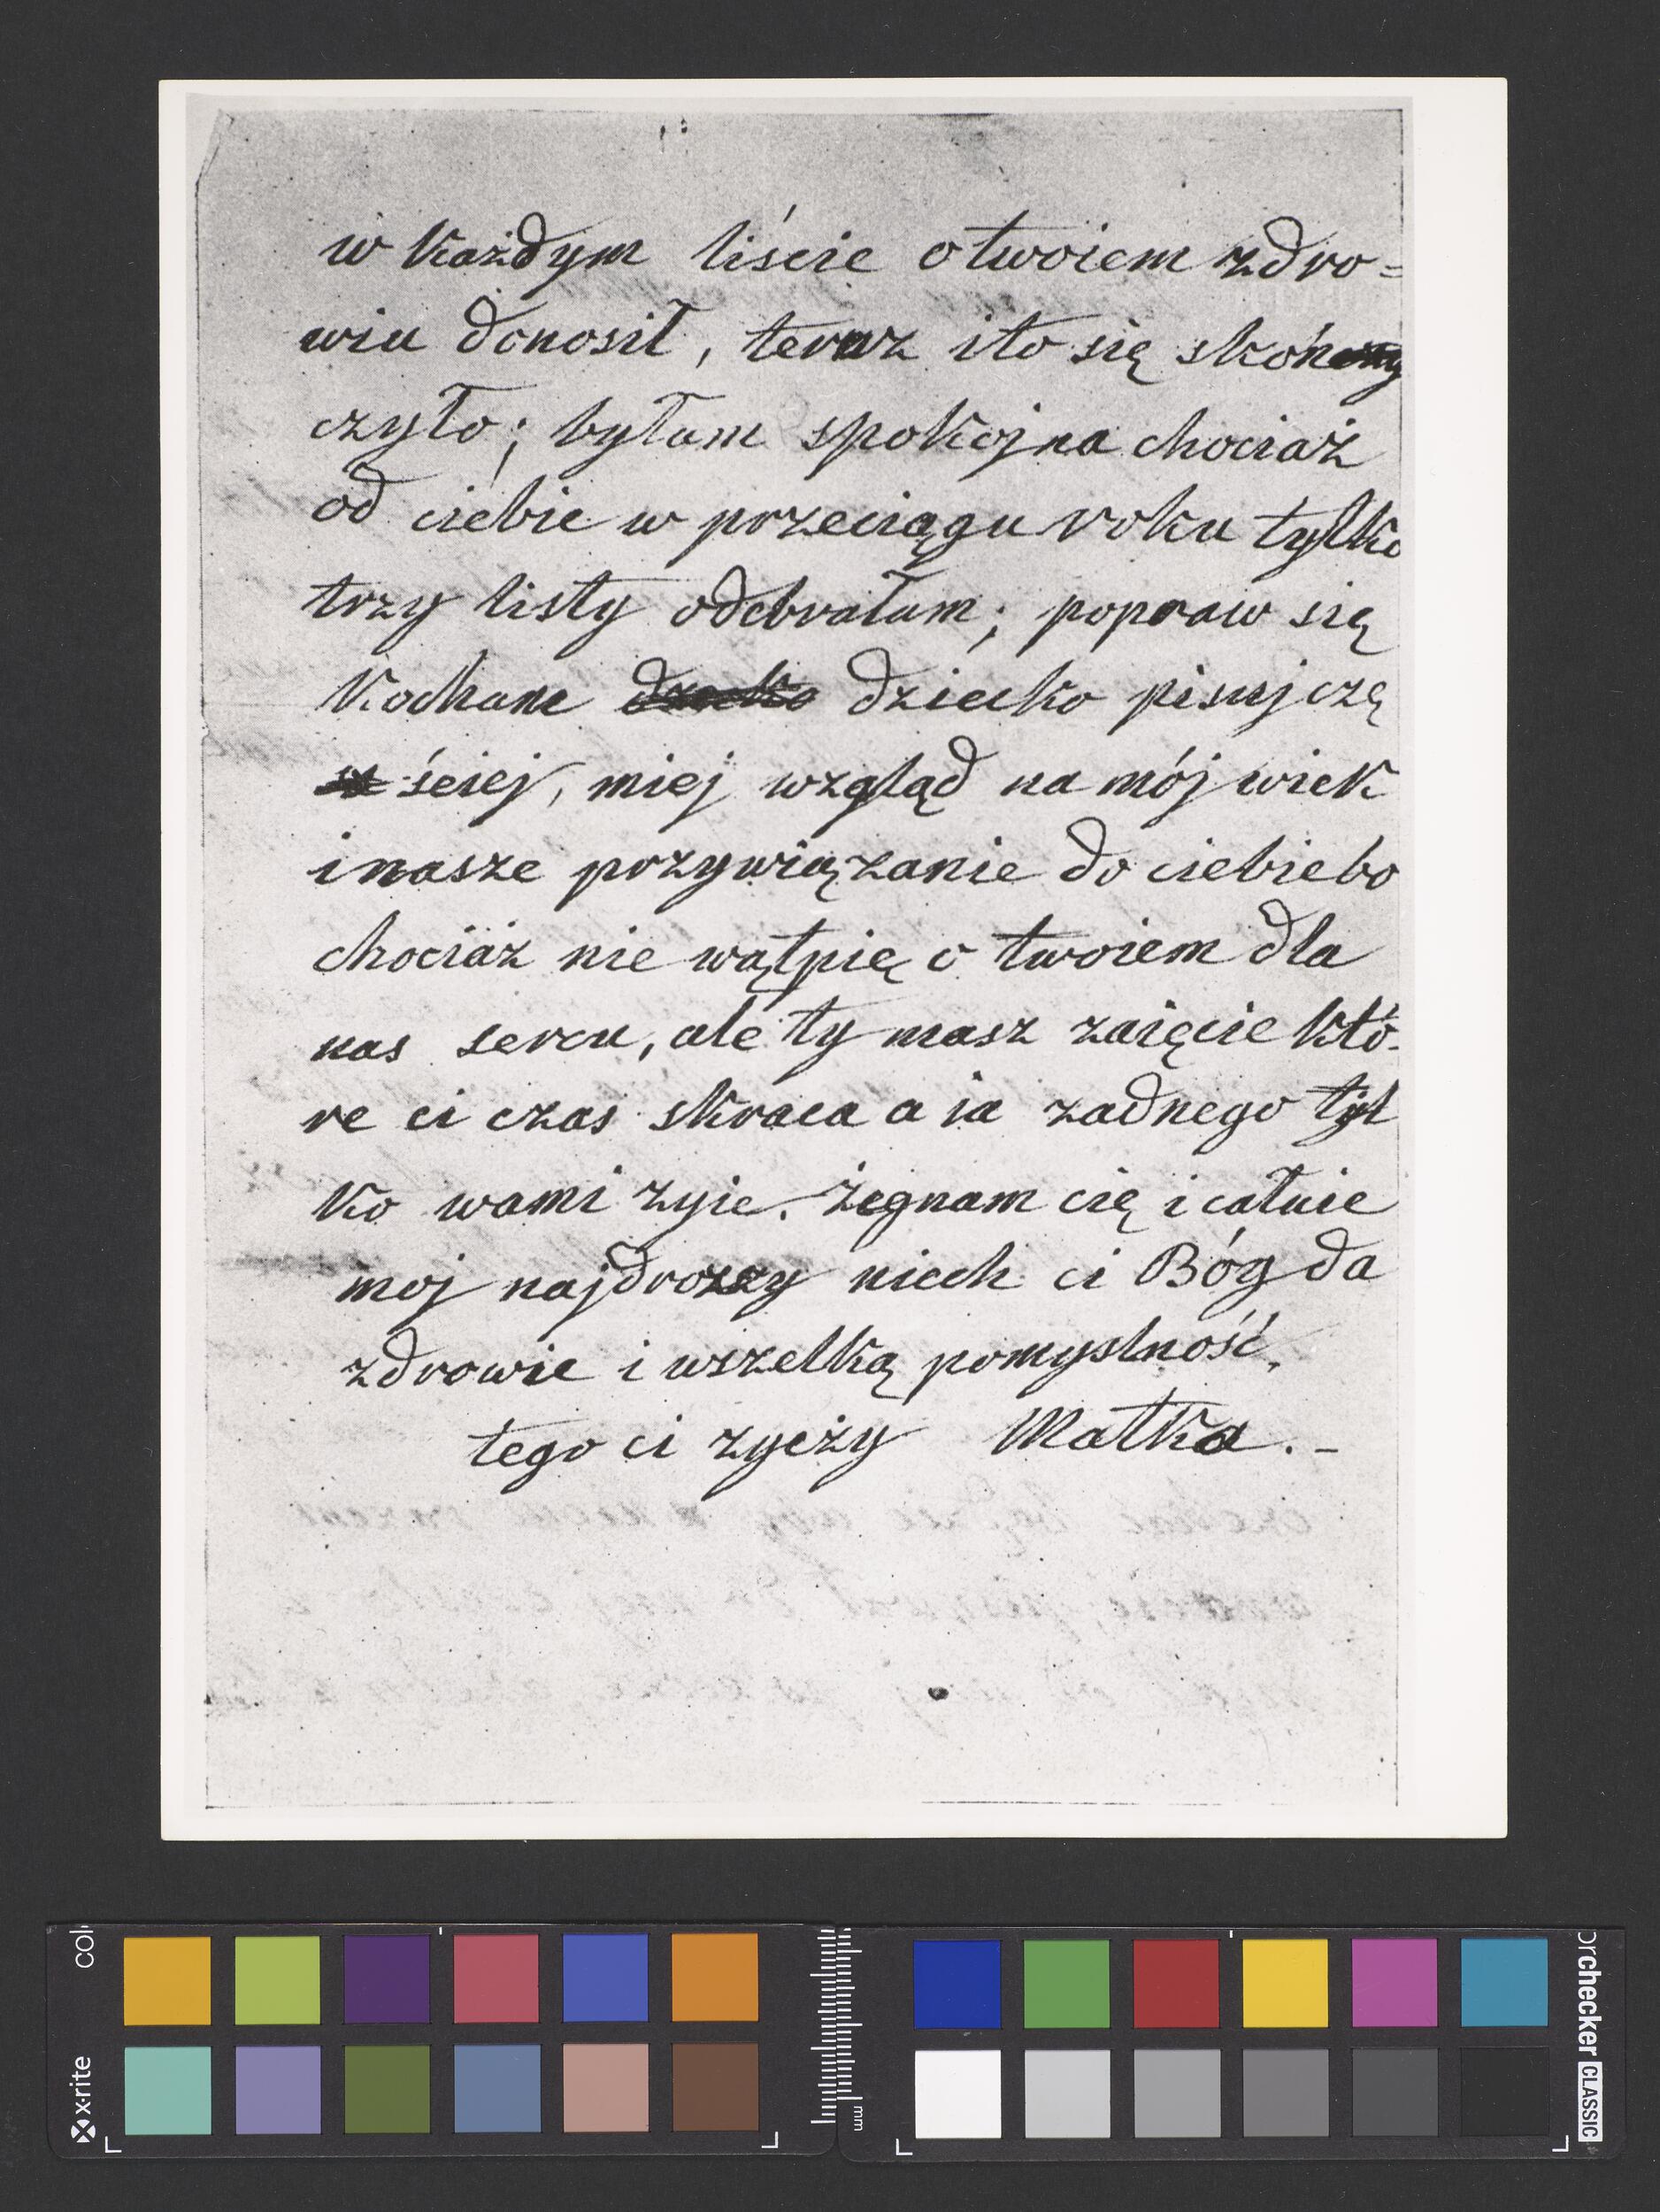 w każdym liście o twoiem zdro=
wiu donosił, teraz i to się skóń
czyło; byłam spokojna chociaż
od ciebie w przeciągu roku tylko
trzy listy odebrałam; popraw się
Kochane dziecko dziecko pisuj czę
ściej, miej wzgląd na mój wiek
i nasze przywiązanie do ciebie bo
chociaż nie wątpię o twoiem dla
nas sercu, ale ty masz zaięcie któ-
re ci czas skraca a ia zadnego tyl
ko wami zyie. żegnam cię i całuie
moj najdrozszy niech ci Bóg da
zdrowie i wszelką pomyslność,
tego ci zyczy Matka.-
x·rite
col
mm
orchecker CLASSIC